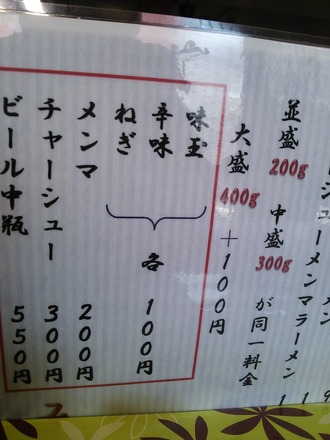 ューメン
メンマラーメン
並盛200g 中盛300gが同一料金
大盛400g+100円
味玉
辛味
ねぎ
各100円
メンマ 200円
チャーシュー 300円
ビール中瓶 550円